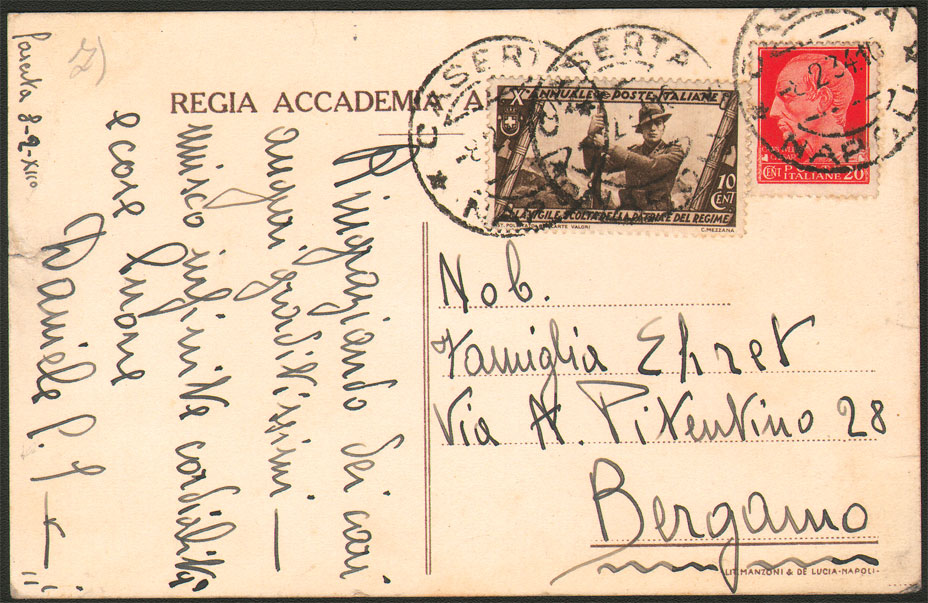 REGIA ACCADEMIA A
Ringraziando dei cari
auguri graditissimi —
unisco infinite cordialità
e cose buone
Daniele P. J
CASERTA
NAPOLI
CASERTA
CASERTA
-8.2.34.10
NAPOLI
X ANNUALE POSTE ITALIANE
10
CENT
LA VIGILE SCOLTA DELLA PATRIA E DEL REGIME
CARTE VALORI
C. MEZZANA
CENT POSTE ITALIANE 20
Nob.
Famiglia Ehret
Via A. Pitentino 28
Bergamo
LIT. MANZONI & DE LUCIA - NAPOLI -